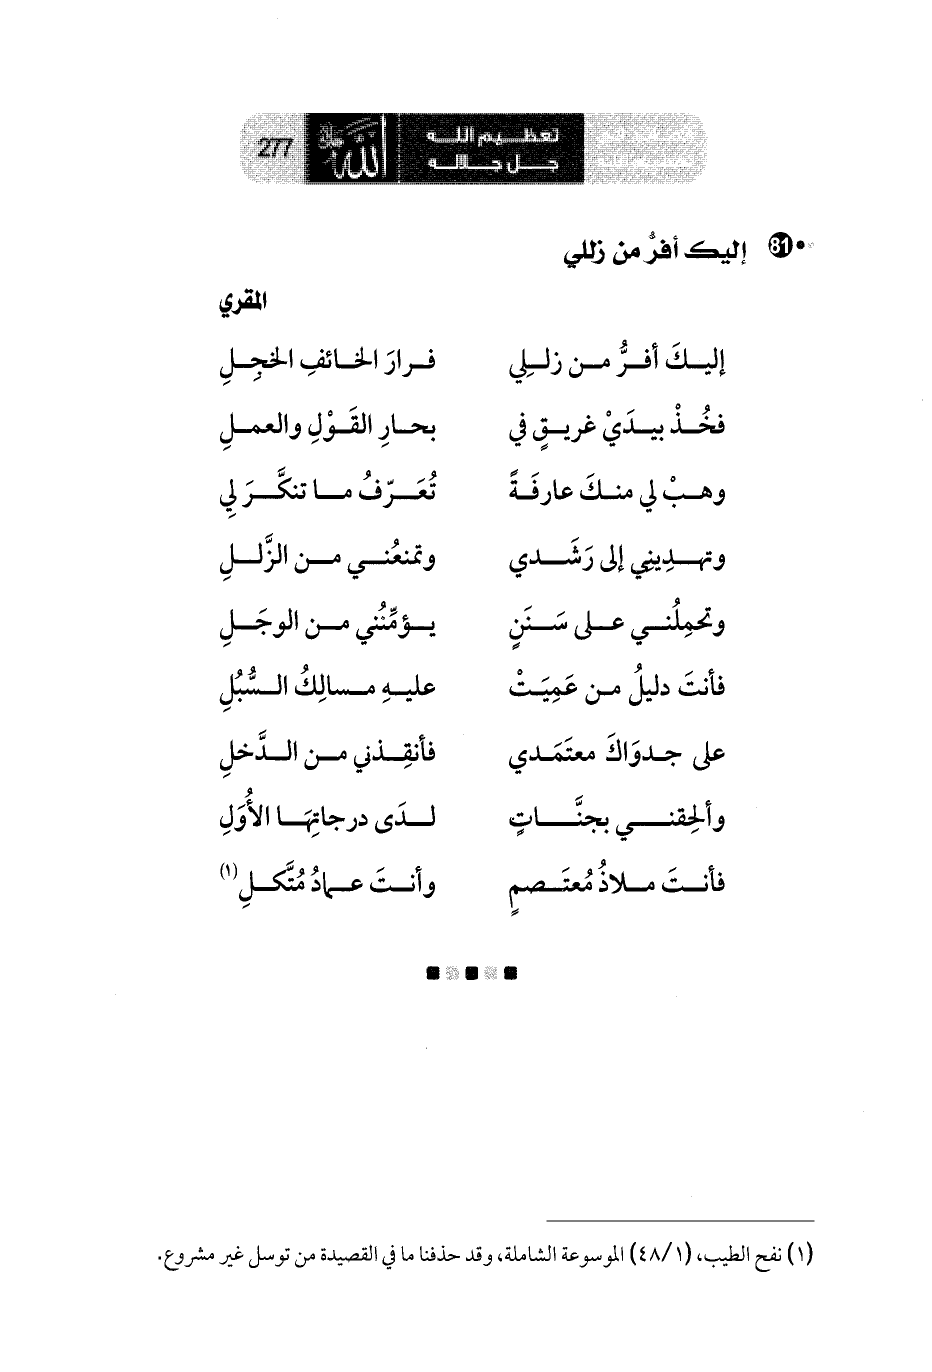 277
تعظيم الله
جل جلاله
81 إليك أفرُّ من زللي
المقري
إليكَ أفرُّ من زللِي فرارَ الخائفِ الخجِلِ
فخُذْ بيدَيْ غريقٍ في بحارِ القَوْلِ والعملِ
وهبْ لي منكَ عارفَةً تُعَرّفُ ما تنكَّرَ لِي
وتهدِيني إلى رَشَدي وتمنعُني من الزَّللِ
وتحمِلُني على سَنَنٍ يؤمِّنُني من الوجَلِ
فأنتَ دليلُ من عَمِيَتْ عليهِ مسالِكُ السُّبُلِ
على جدوَاكَ معتَمَدي فأنقِذني من الدَّخلِ
وألحِقني بجنَّاتٍ لدَى درجاتِهَا الأُوَلِ
فأنتَ ملاذُ مُعتَصمٍ وأنتَ عمادُ مُتَّكلِ(١)
(١) نفح الطيب، (٤٨/١) الموسوعة الشاملة، وقد حذفنا ما في القصيدة من توسل غير مشروع.